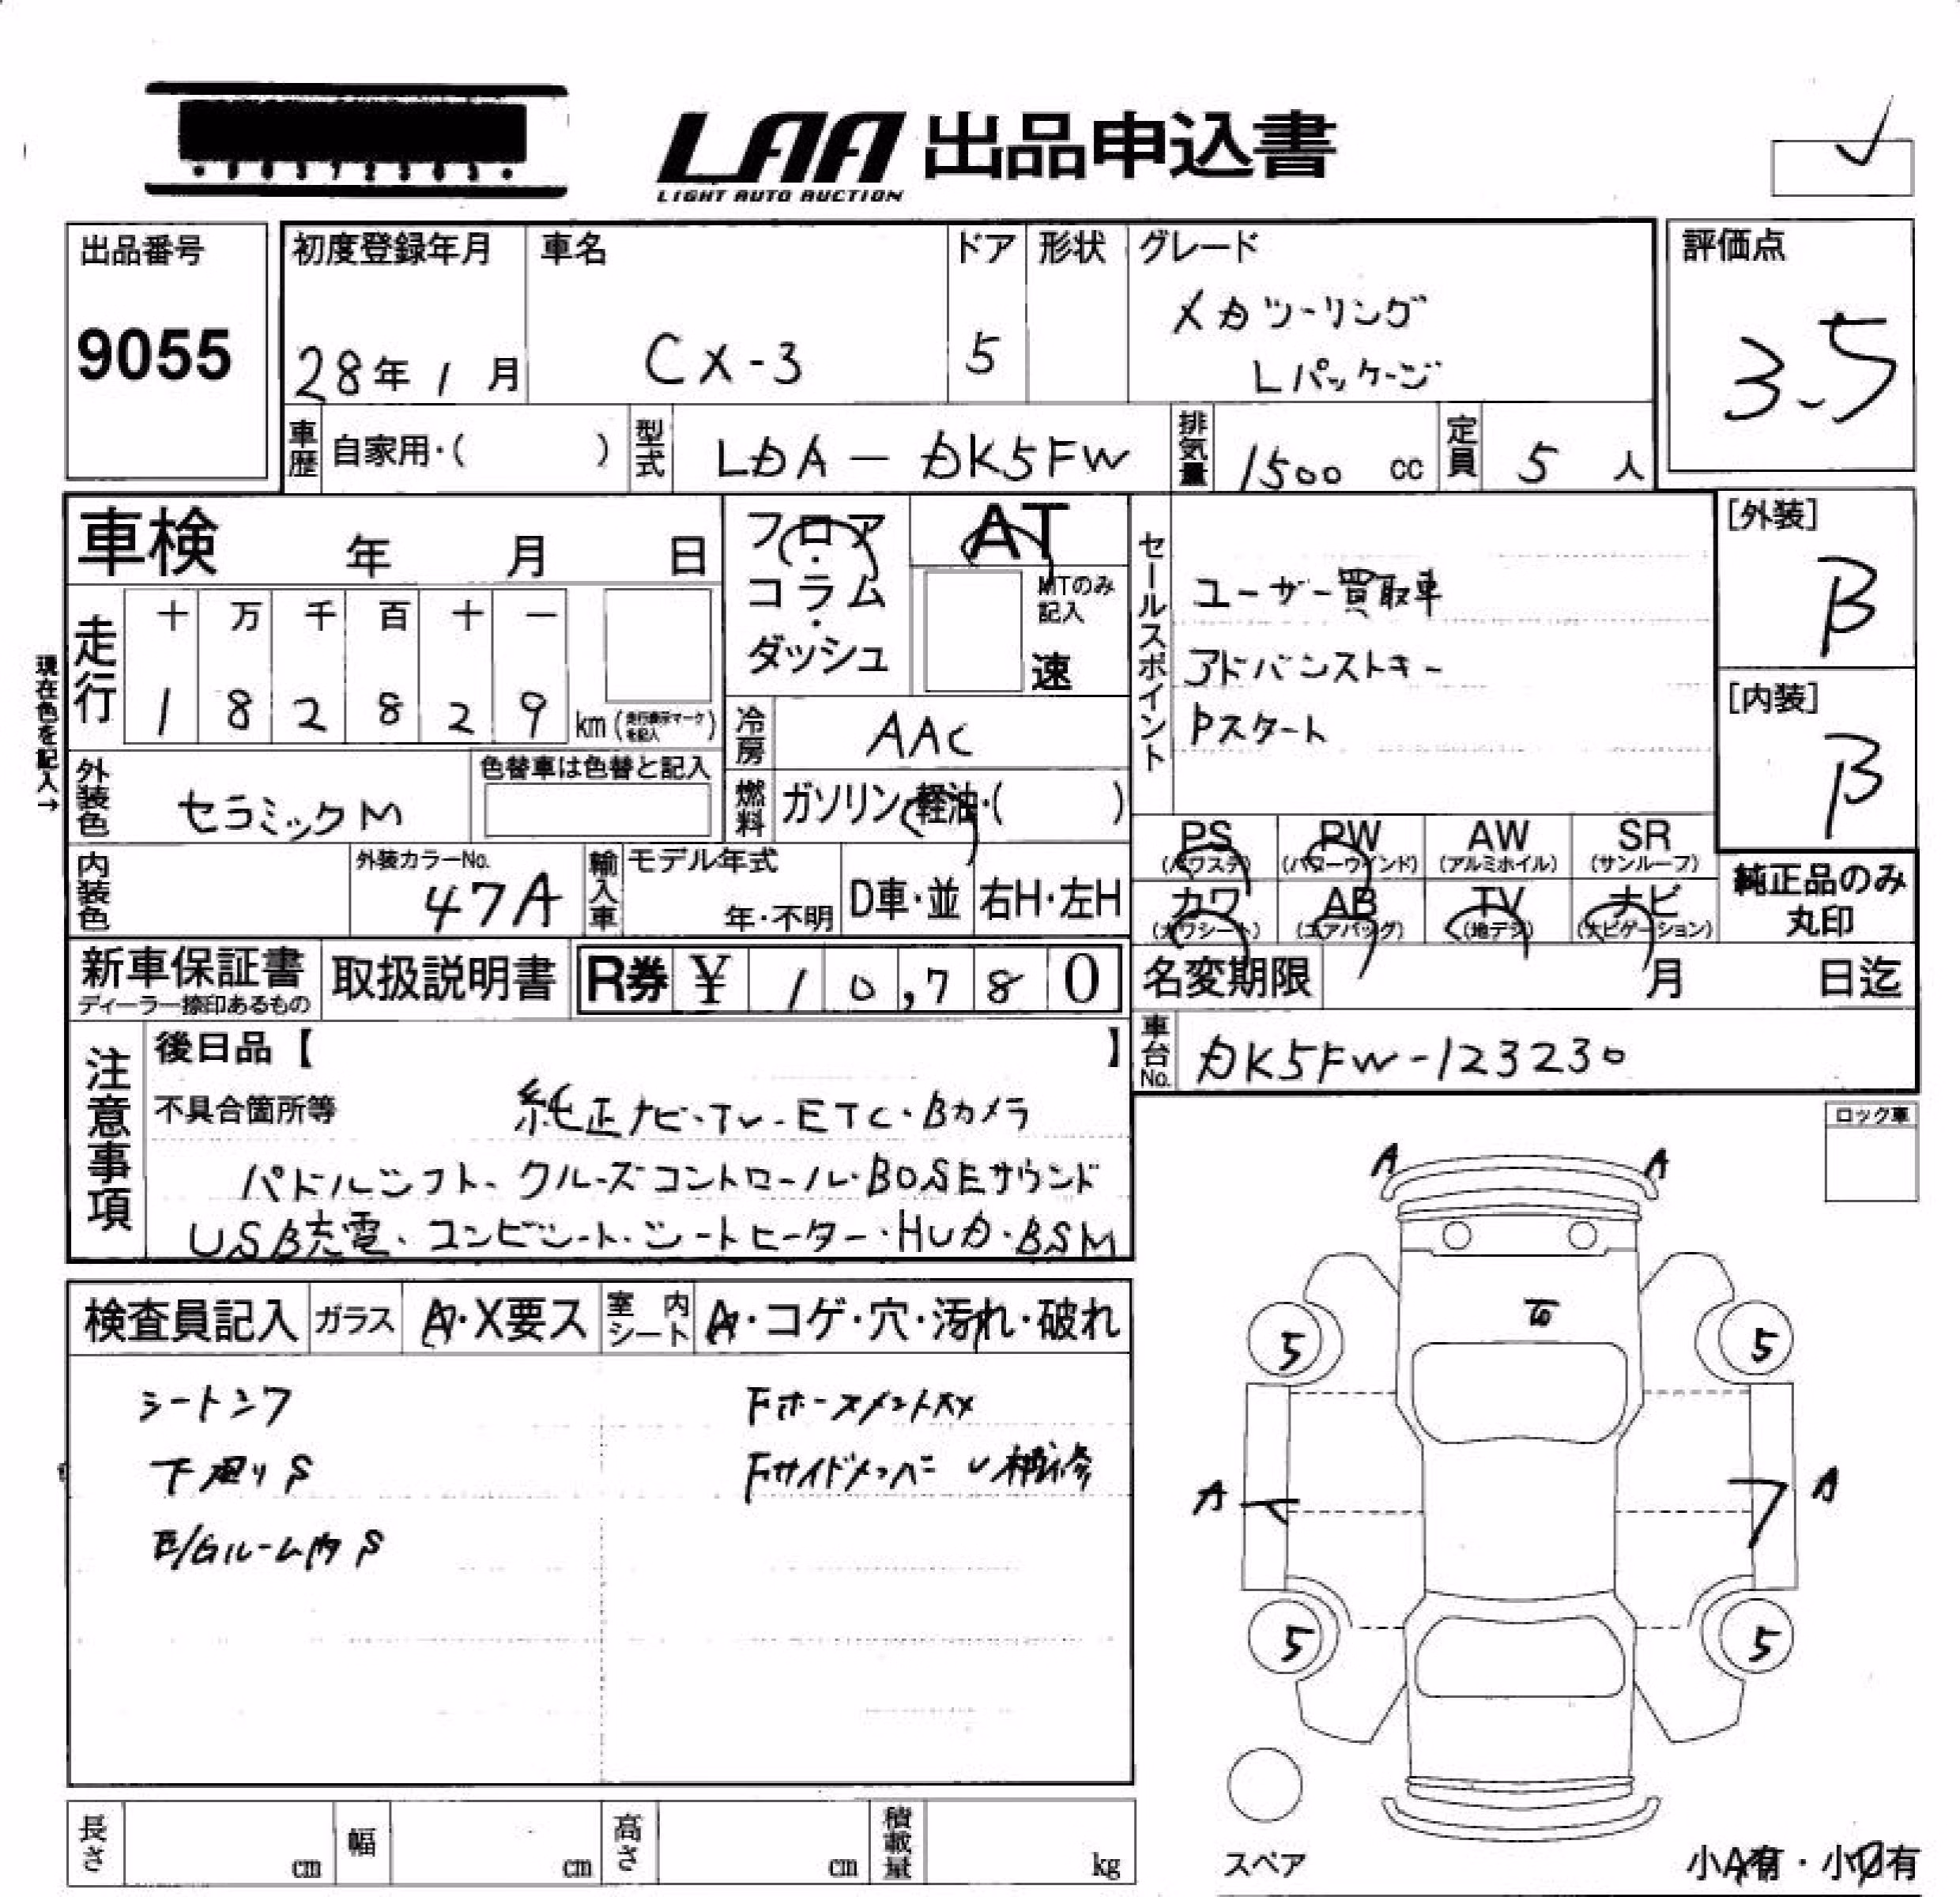 LAA 出品申込書
LIGHT AUTO AUCTION
出品番号
9055
初度登録年月
28年 1月
車名
CX-3
ドア
5
形状
グレード
XDツーリング
Lパッケージ
評価点
3.5
車歴 自家用・( )
型式 LDA-DK5FW
排気量 1500 cc
定員 5 人
車検 年 月 日
フロア・コラム・ダッシュ
AT
MTのみ記入
速
セールスポイント
ユーザー買取車
アドバンストキー
Pスタート
[外装]
B
[内装]
B
現在色を記入→
走行
十 万 千 百 十 一
1 8 2 8 2 9 km (走行表示マークを記入)
冷房 AAC
外装色 セラミックM
色替車は色替と記入
燃料 ガソリン・軽油・( )
PS (パワステ) PW (パワーウインド) AW (アルミホイル) SR (サンルーフ)
カワ (カワシート) AB (エアバッグ) TV (地デジ) ナビ (ナビゲーション)
純正品のみ丸印
内装色
外装カラーNo.
47A
輸入車
モデル年式
年・不明
D車・並
右H・左H
新車保証書
ディーラー捺印あるもの
取扱説明書
R券 ¥ 10,780
名変期限 月 日迄
車台No. DK5FW-123230
注意事項
後日品【 】
不具合箇所等
純正ナビ・TV・ETC・Bカメラ
パドルシフト・クルーズコントロール・BOSEサウンド
USB充電・コンビシート・シートヒーター・HUD・BSM
ロック車
検査員記入
ガラス A・X要ス
室内シート A・コゲ・穴・汚れ・破れ
シートシワ
下廻りS
E/Gルーム内S
Fホースメント
Fサイドメンバー 補修
A A
5 5
A A
5 5
スペア
小A有・小U有
長さ cm
幅 cm
高さ cm
積載量 kg